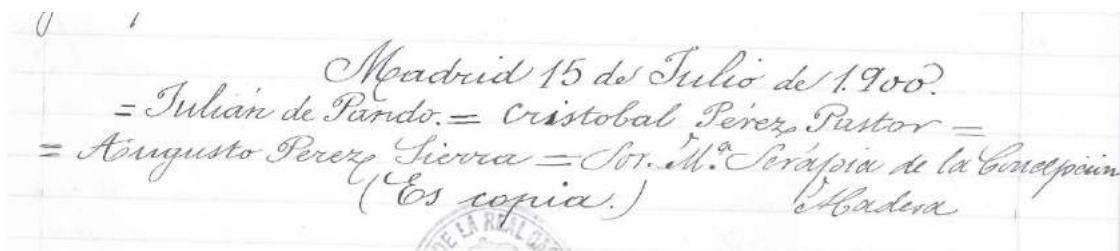 Madrid 15 de Julio de 1.900.
= Julián de Pando. = Cristobal Pérez Pastor =
= Augusto Perez Sierra = Sor. M.ª Serápia de la Concepción
(Es copia.) Madera
DE LA REAL